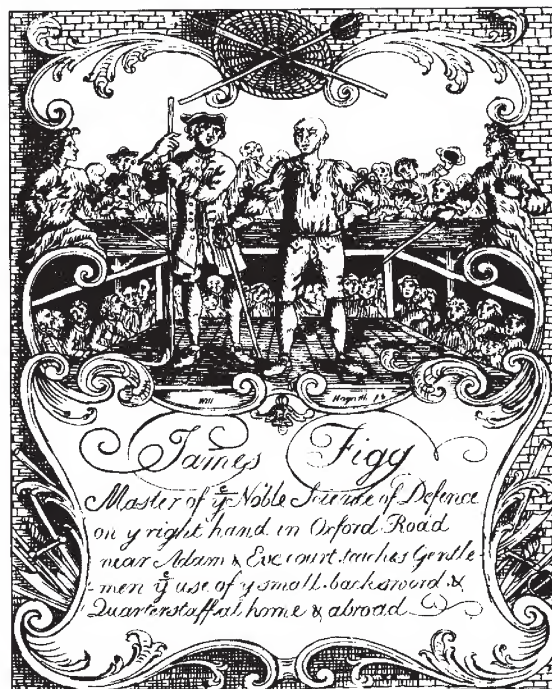 Will Hogarth
James Figg
Master of yᵉ Noble Science of Defence
on y right hand in Oxford Road
near Adam & Eve court teaches Gentle-
-men yᵉ use of y small backsword &
Quarterstaff at home & abroad